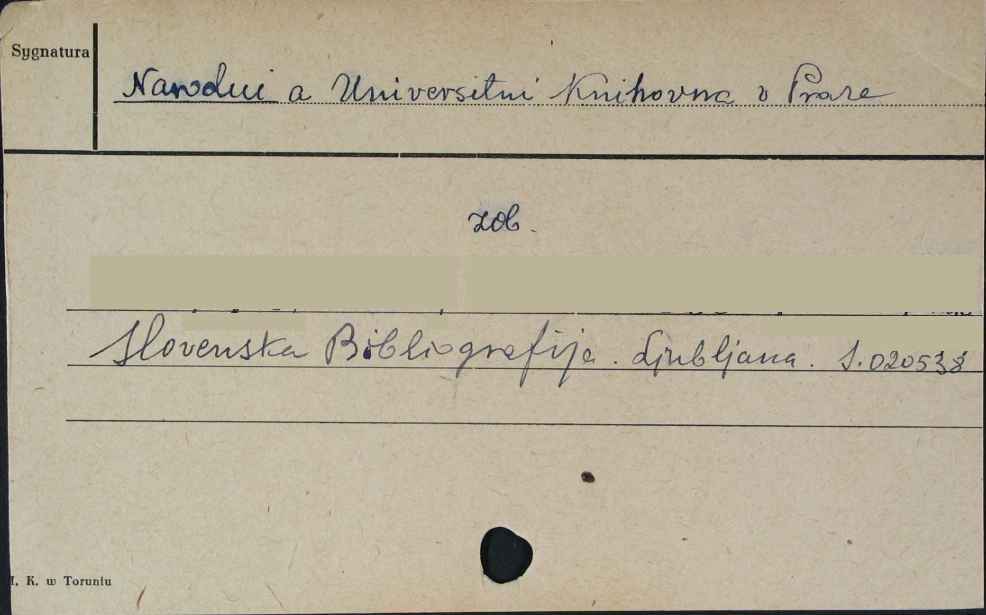 Sygnatura
Narodni a Universitni Knihovna v Praze
zob.
Slovenska Bibliografija. Ljubljana. S.020538
K. w Toruniu